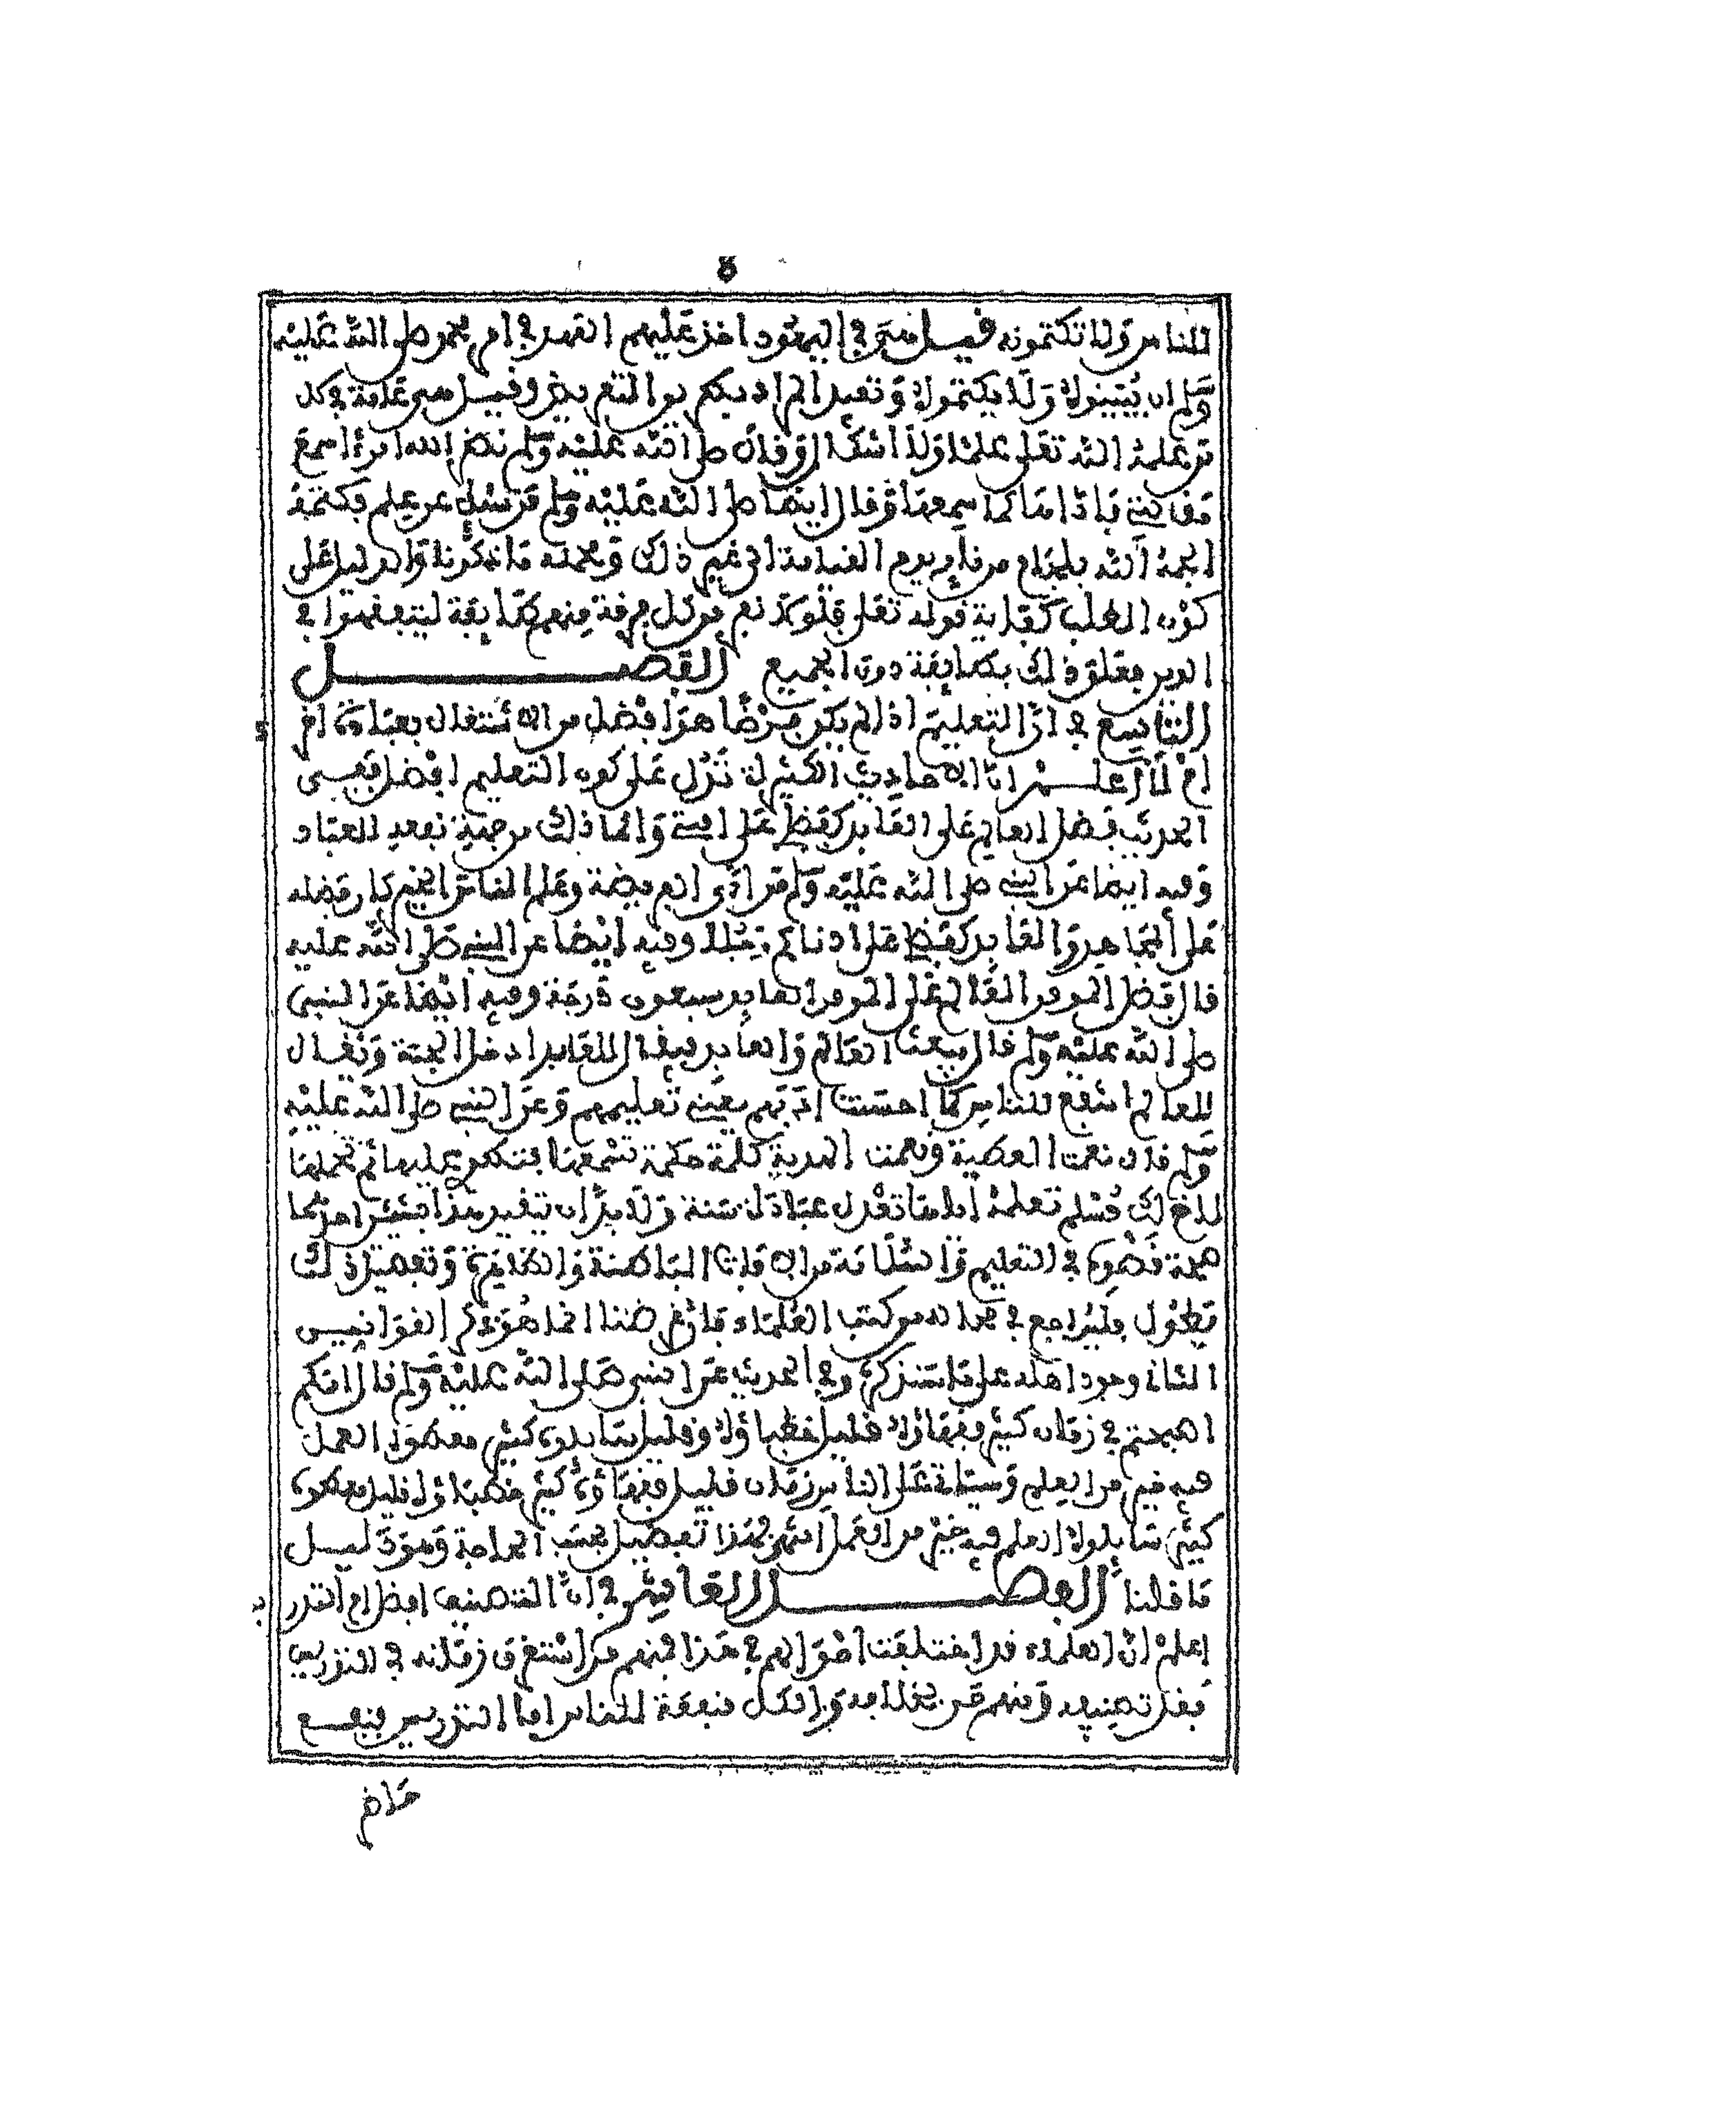 8
للناس ولا تكتمونه قيل هي في اليهود اخذ عليهم العهد في امر محمد صلى الله عليه
وسلم ان يبينوه ولا يكتموه وقيل المراد بكم بوا التعريف وقيل هي عامة في كل
من علمه الله تعلى علما ولا اشكال وقال صلى الله عليه وسلم نضر الله امرءا سمع
مقالتي فاداها كما سمعها وقال ايضا صلى الله عليه وسلم من سئل عن علم فكتمه
الجمه الله بلجام من نار يوم القيامة الى غير ذلك ومحمله ما ذكرناه والدليل على
كون الطلب كفاية قوله تعلى فلولا نفر من كل فرقة منهم طايفة ليتفقهوا في
الدين فعلق ذلك بطايفة دون الجميع الفصل
التاسع في ان التعليم اذا لم يكن فرضا هو افضل من الاشتغال بعبادة اخرى
ام لا اعلم ان الاحاديث الكثيرة تدل على كون التعليم افضل ففي
الحديث فضل العالم على العابد كفضلي على امتي وانما ذلك من جهة نفعه العباد
وفيه ايضا عن النبي صلى الله عليه وسلم من ادى الفريضة وعلم الناس الخير كان فضله
على المجاهد والعابد كفضلي على ادناكم رجلا وفيه ايضا عن النبي صلى الله عليه
قال فضل المومن العالم على المومن العابد سبعون درجة وفيه ايضا عن النبي
صلى الله عليه وسلم قال يبعث العالم والعابد فيقال للعابد ادخل الجنة ويقال
للعالم اشفع للناس كما احسنت ادبهم يعني تعليمهم وعن النبي صلى الله عليه
وسلم قال نعمت العطية ونعمت الهدية كلمة حكمة تسمعها فتنطوي عليها ثم تحملها
لاخ لك مسلم تعلمه اياها تعدل عبادة سنة ولا بد ان تقيد هذا بشيئين احدهما
صحة قصده في التعليم والسلامة من الافات الباطنة والظاهرة وتفصيل ذلك
يطول فليراجع في محاله من كتب العلماء فان غرضنا انما هو ذكر القوانين
الثاني وجود اهله على ما سنذكره وفي الحديث عن النبي صلى الله عليه وسلم قال انكم
اصبحتم في زمان كثير فقهاؤه قليل خطباؤه وقليل سايلوه كثير معطوه العمل
فيه خير من العلم وسياتي على الناس زمان قليل فقهاؤه كثير خطباؤه قليل معطوه
كثير سايلوه العلم فيه خير من العمل انتهى فهذا تفصيل بحسب الحاجة وهو دليل
ما قلنا الفصل العاشر في ان التصنيف افضل ام التدريس
اعلم ان العلماء قد اختلفت احوالهم في هذا فمنهم من استغرق زمانه في التدريس
فقل تصنيفه ومنهم من بخلافه وفي الكل منفعة للناس اما التدريس فنفع
حاضر